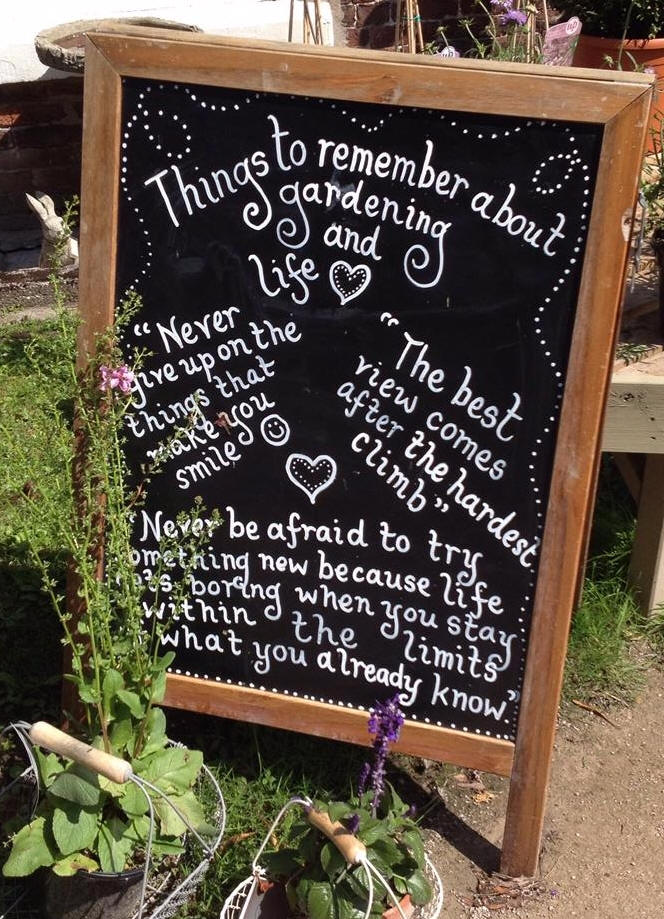 Things to remember about
gardening
and
life
"Never
give up on the
things that
make you
smile
"The best
view comes
after the hardest
climb"
"Never be afraid to try
something new because life
gets boring when you stay
within the limits
what you already know"